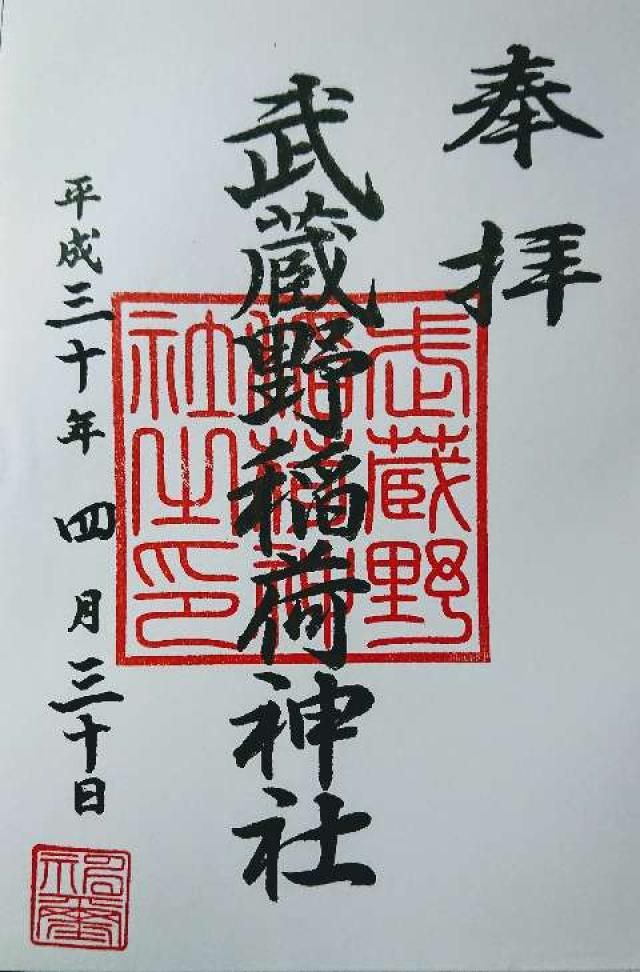 奉拝
武蔵野稲荷神社
平成三十年四月三十日
武蔵野
稲荷神
社之印